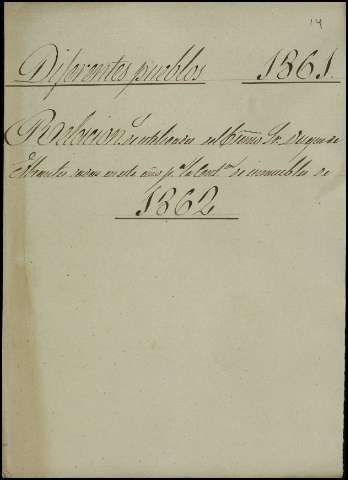 14
Diferentes pueblos 1861.
Relacion de utilidades del Exmo. Sr. Duque de
Abrantes dadas en este año pª. la Contᵒⁿ. de inmuebles de
1862